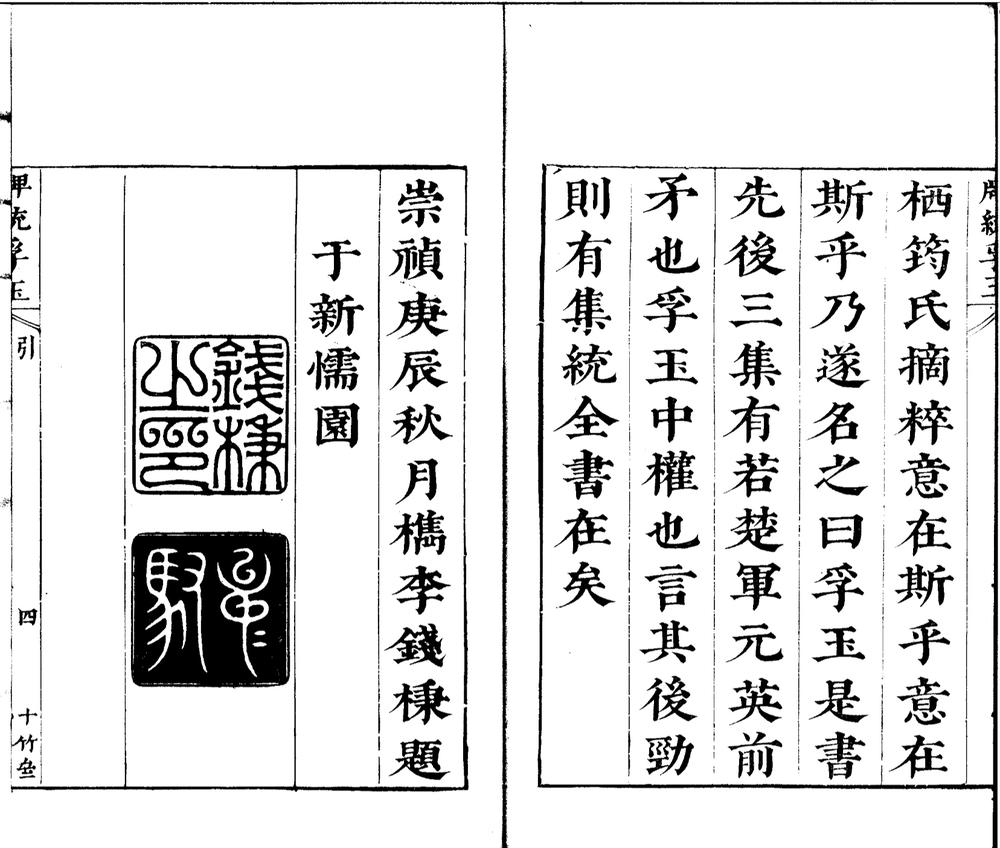 栖筠氏摘粹意在斯乎意在
斯乎乃遂名之曰孚玉是書
先後三集有若楚軍元英前
矛也孚玉中權也言其後勁
則有集統全書在矣
崇禎庚辰秋月檇李錢棅題
于新懦園
錢棅之印
牌統孚玉
引
四
十竹